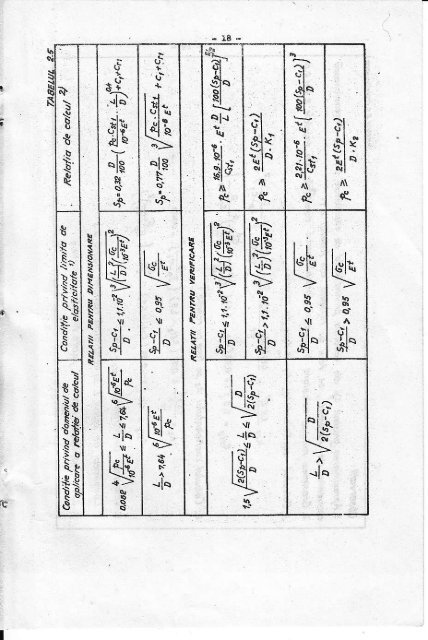 - 18 -
TABELUL 2.5
Condiţie privind domeniul de aplicare a relaţiei de calcul
Condiţie privind limita de elasticitate 1)
Relaţia de calcul 2)
RELAŢII PENTRU DIMENSIONARE
0,082 ⁴√(pc / 10⁻⁶Eᵗ) ≤ L/D ≤ 7,64 ⁶√(10⁻⁶Eᵗ / pc)
(Sp-C1)/D ≤ 1,1·10⁻² ³√((L/D)² (σc / 10⁻³Eᵗ)²)
Sp = 0,32 D/100 (pc·Cst1 / 10⁻⁶Eᵗ · L/D)^0,4 + C1 + Cr1
L/D > 7,64 ⁶√(10⁻⁶Eᵗ / pc)
(Sp-C1)/D ≤ 0,95 √(σc / Eᵗ)
Sp = 0,77 D/100 ³√(pc·Cst1 / 10⁻⁶Eᵗ) + C1 + Cr1
RELAŢII PENTRU VERIFICARE
1,5 √(2(Sp-C1)/D) ≤ L/D ≤ √(D / 2(Sp-C1))
(Sp-C1)/D ≤ 1,1·10⁻² ³√((L/D)² (σc / 10⁻³Eᵗ)²)
pc ≥ 16,9·10⁻⁶ / Cst1 · Eᵗ D/L [100(Sp-C1)/D]^5/2
(Sp-C1)/D > 1,1·10⁻² ³√((L/D)² (σc / 10⁻³Eᵗ)²)
pc ≥ 2Eᵗ(Sp-C1) / D·K1
L/D > √(D / 2(Sp-C1))
(Sp-C1)/D ≤ 0,95 √(σc / Eᵗ)
pc ≥ 2,21·10⁻⁶ / Cst1 · Eᵗ [100(Sp-C1)/D]³
(Sp-C1)/D > 0,95 √(σc / Eᵗ)
pc ≥ 2Eᵗ(Sp-C1) / D·K2